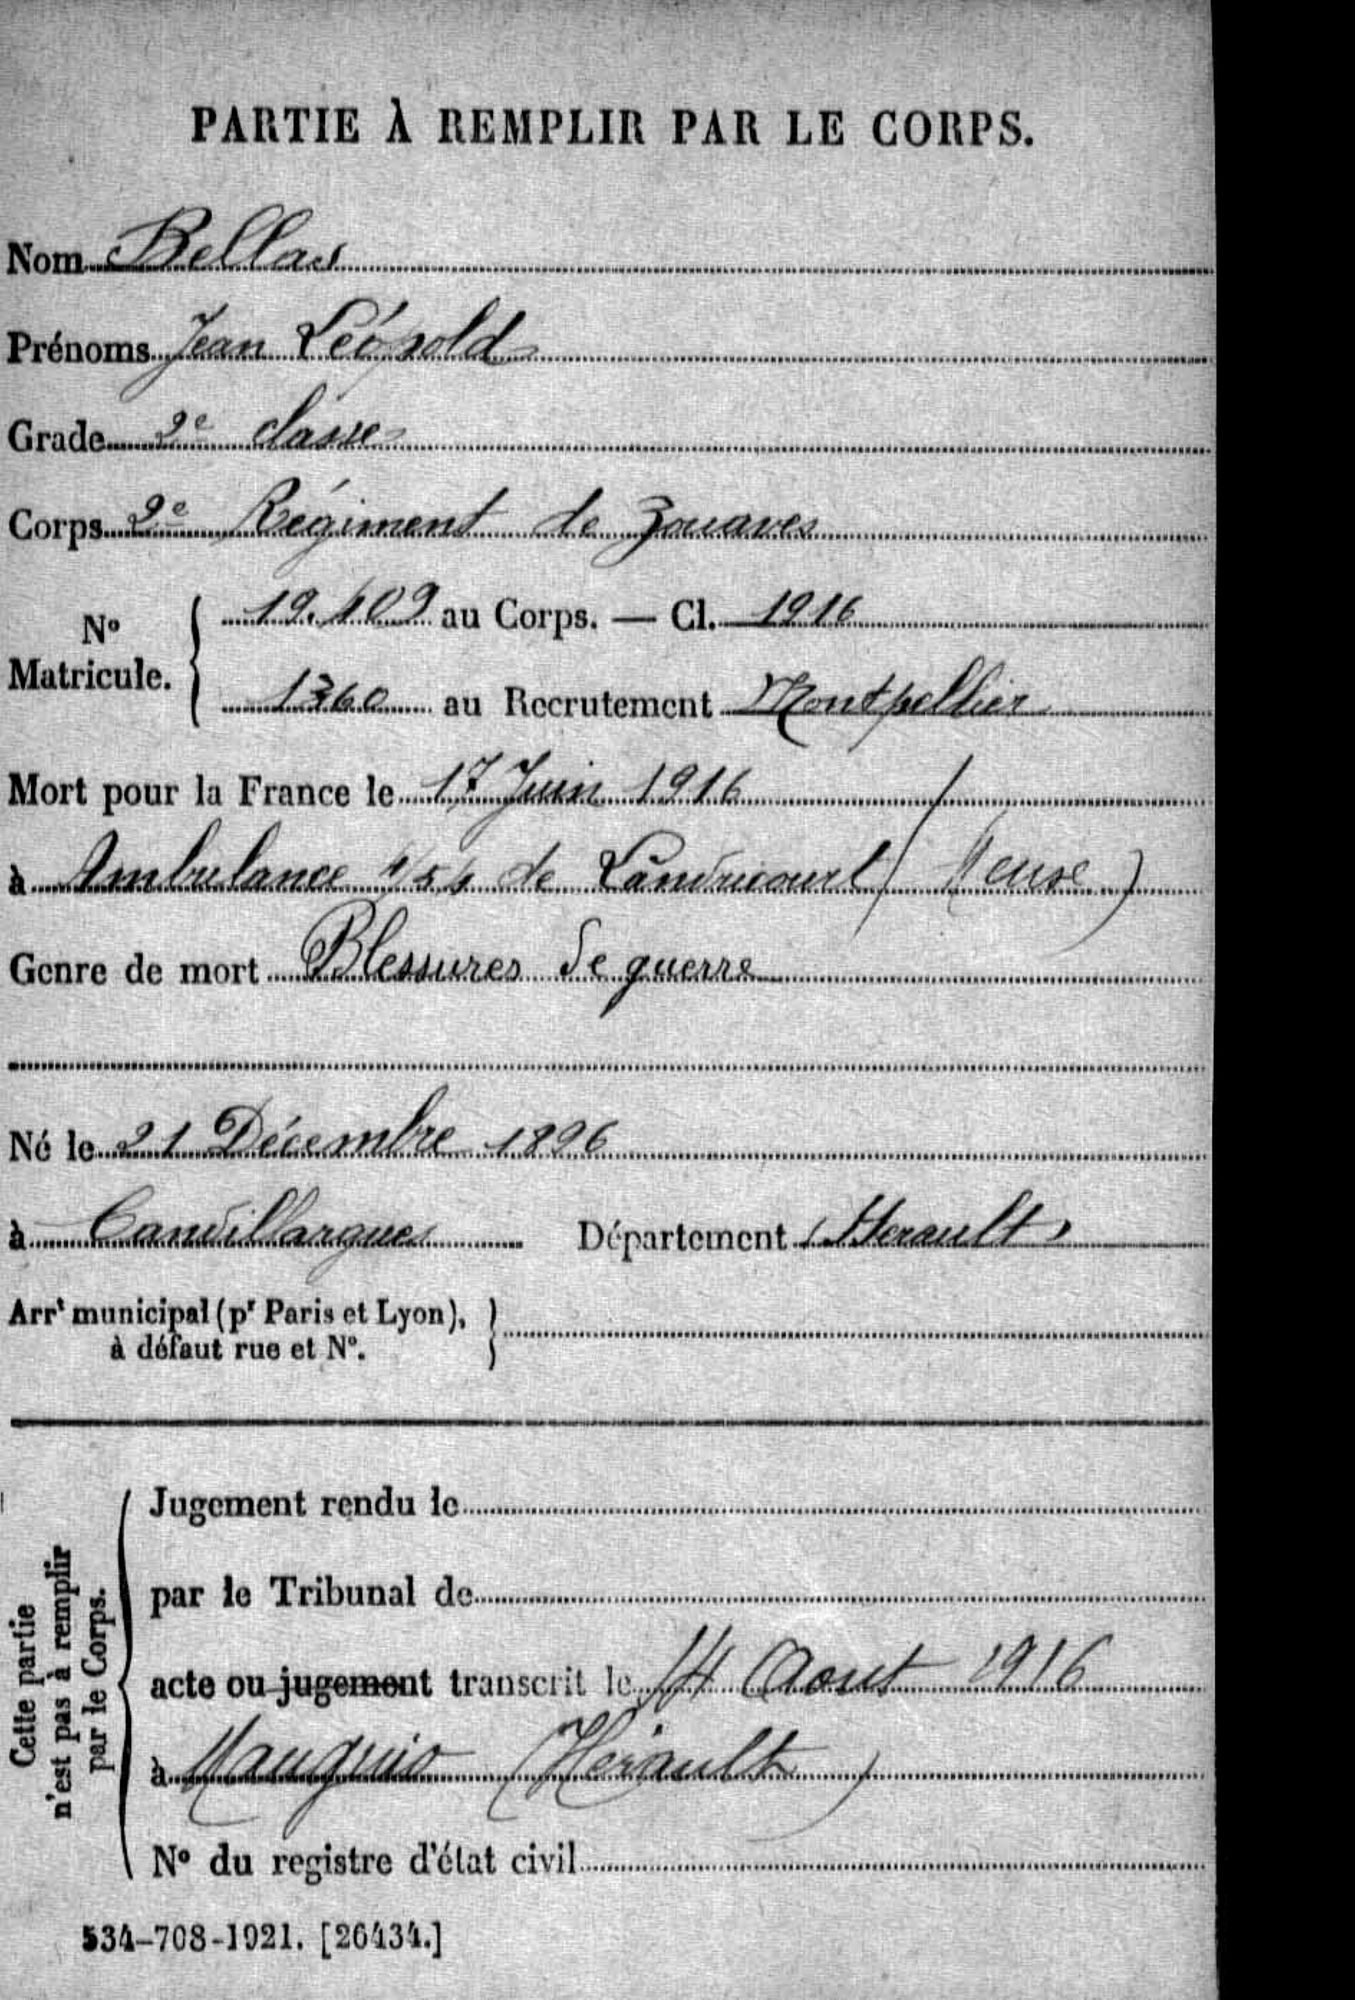 PARTIE À REMPLIR PAR LE CORPS.
Nom Bellas
Prénoms Jean Léopold
Grade 2e classe
Corps 2e Régiment de Zouaves
No Matricule. 19.409 au Corps. — Cl. 1916
1360 au Recrutement Montpellier
Mort pour la France le 17 Juin 1916
à Ambulance de Landrecourt (Meuse)
Genre de mort Blessures de guerre
Né le 21 Décembre 1896
à Candillargues Département Herault
Arrt municipal (pr Paris et Lyon),
à défaut rue et No.
Cette partie
n'est pas à remplir
par le Corps.
Jugement rendu le
par le Tribunal de
acte ou jugement transcrit le 14 Aout 1916
à Mauguio (Herault)
No du registre d'état civil
534-708-1921. [26434.]